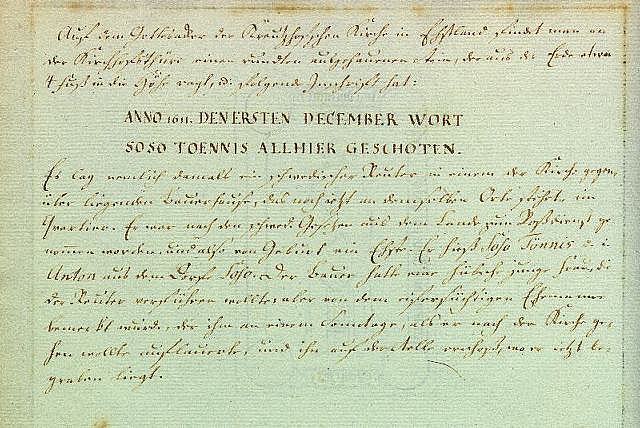 Auf dem Gottesacker der Kreutzhofschen Kirche in Ehstland findet man an
der Kirchhofsthüre einen runden ausgehauenen Stein, der aus der Erde etwa
4 Fuß in die Höhe ragt, u. folgende Innschrift hat:
ANNO 1611. DEN ERSTEN DECEMBER WORT
SOSO TOENNIS ALLHIER GESCHOTEN.
Es lag nemlich damals ein schwedischer Reuter in einem der Kirche gegen
über liegenden Bauerhause, das noch jetzt an demselben Orte steht, im
Quartier. Er war nach den schwed. Gesetzen aus dem Lande zum Roßdienst ge
nommen worden, und also von Geburt ein Ehste. Er hieß Soso Tönnis d. i.
Anton aus dem Dorf Soso. Der Bauer hatte eine hübsche junge Frau, die
der Reuter verführen wollte; aber von dem eifersüchtigen Ehemanne
bemerkt wurde, der ihm an einem Sonntage, als er nach der Kirche ge-
hen wollte auflauerte, und ihn auf der Stelle erschoß, wo er jetzt be-
graben liegt.